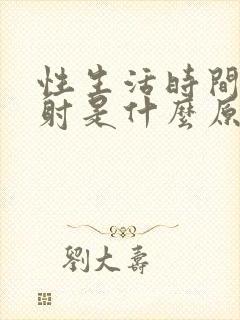 性生活時間
射是什麼原
劉大壽